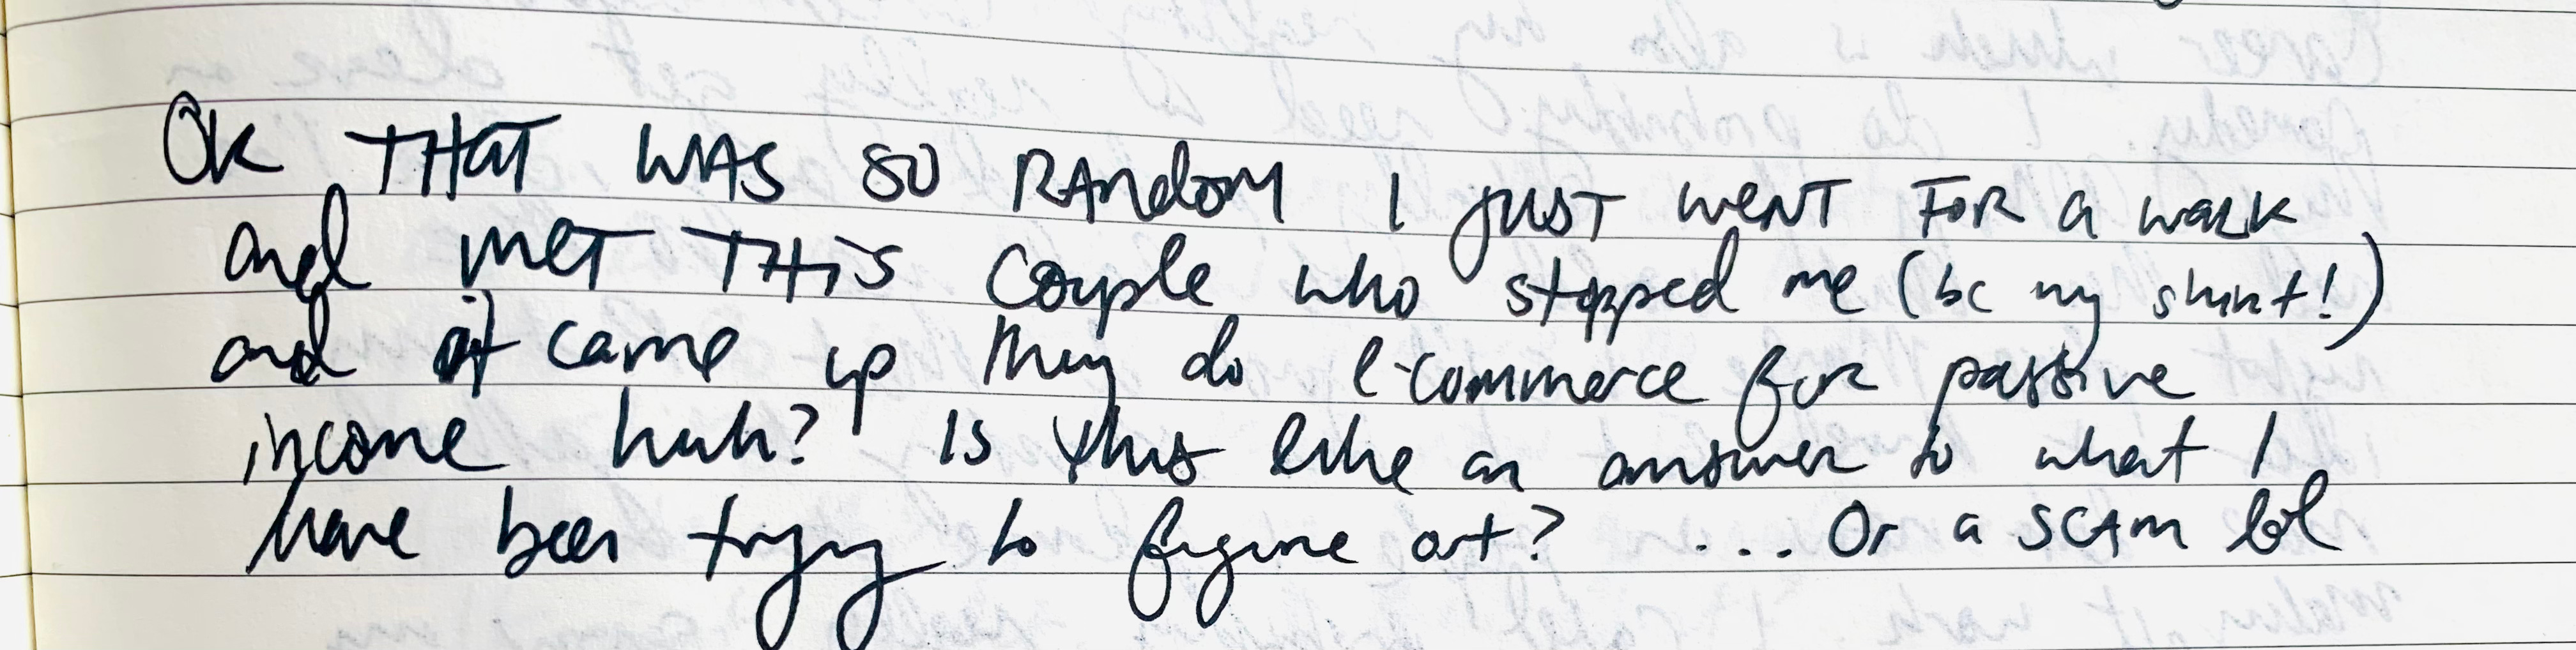 OK THAT WAS SO RANdOM I JUST WENT FOR a walk
and MET THiS couple who stopped me (bc my shirt!)
and it came up they do e-commerce for passive
income huh? Is this like an answer to what I
have been trying to figure out? .... Or a SCAM lol